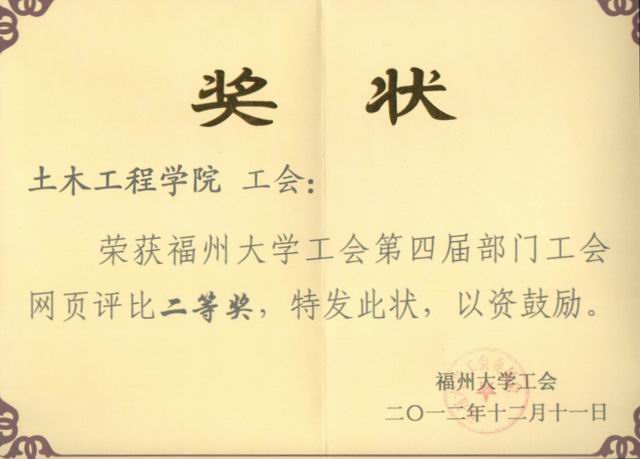 奖状
土木工程学院 工会：
荣获福州大学工会第四届部门工会
网页评比二等奖，特发此状，以资鼓励。
福州大学工会
二〇一二年十二月十一日